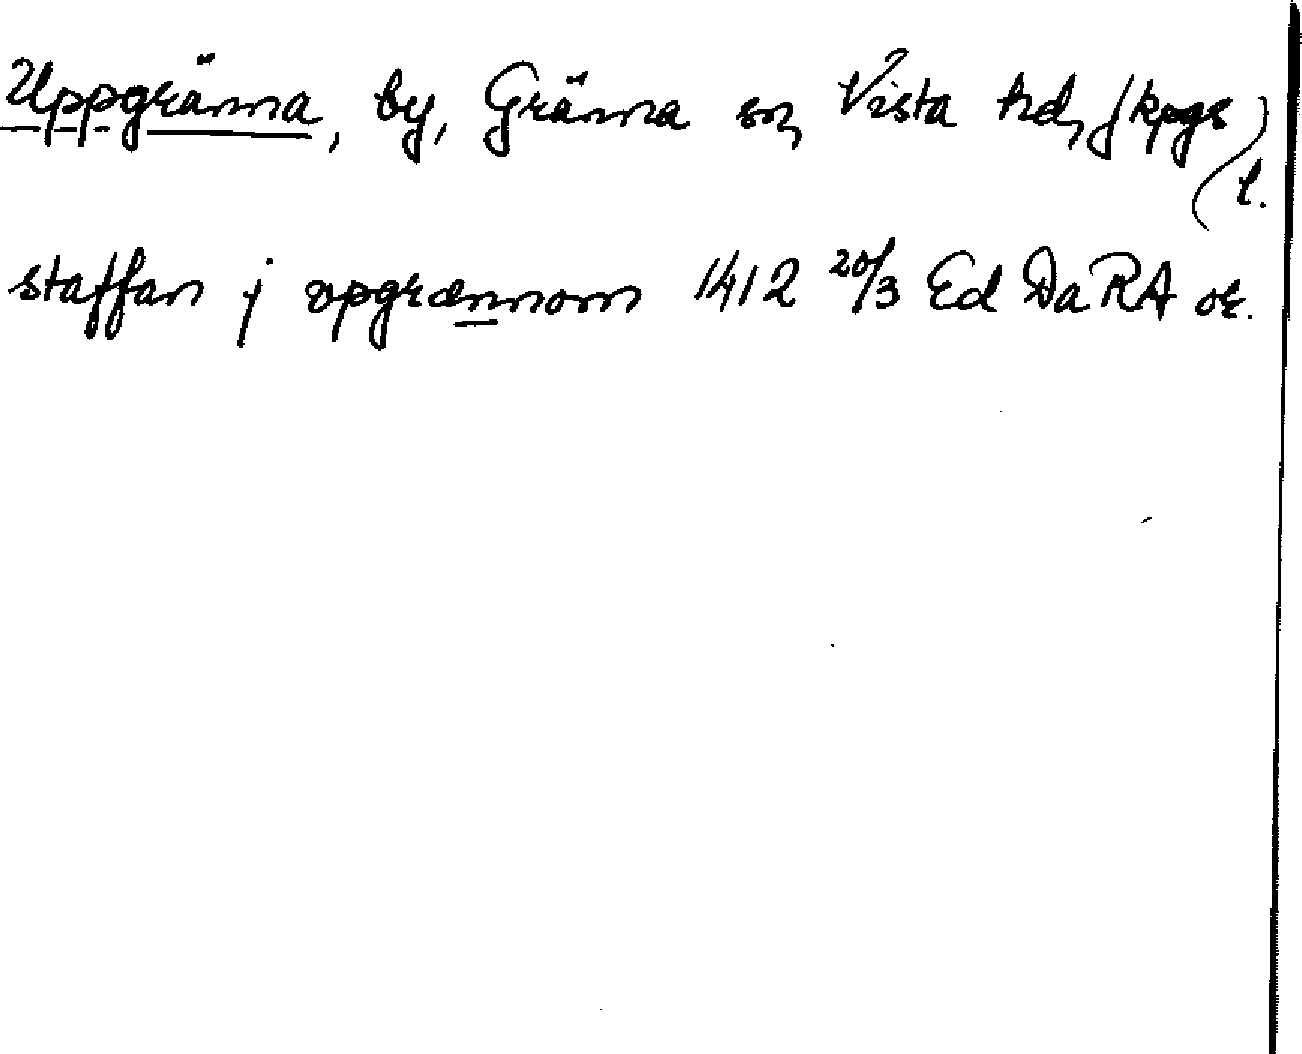 Uppgränna, by, Gränna sn, Vista hd, Jkpgs l.
staffan j vpgrænnom 1412 20/3 Ed Da RA or.